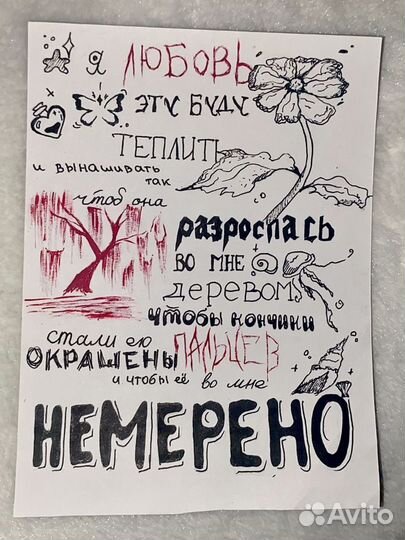 я ЛЮБОВЬ
ЭТУ БУДУ
ТЕПЛИТЬ
и вынашивать
так
чтоб она
разрослась
во мне
деревом,
чтобы кончики
стали ею ПАЛЬЦЕВ
ОКРАШЕНЫ
и чтобы её во мне
НЕМЕРЕНО
Avito